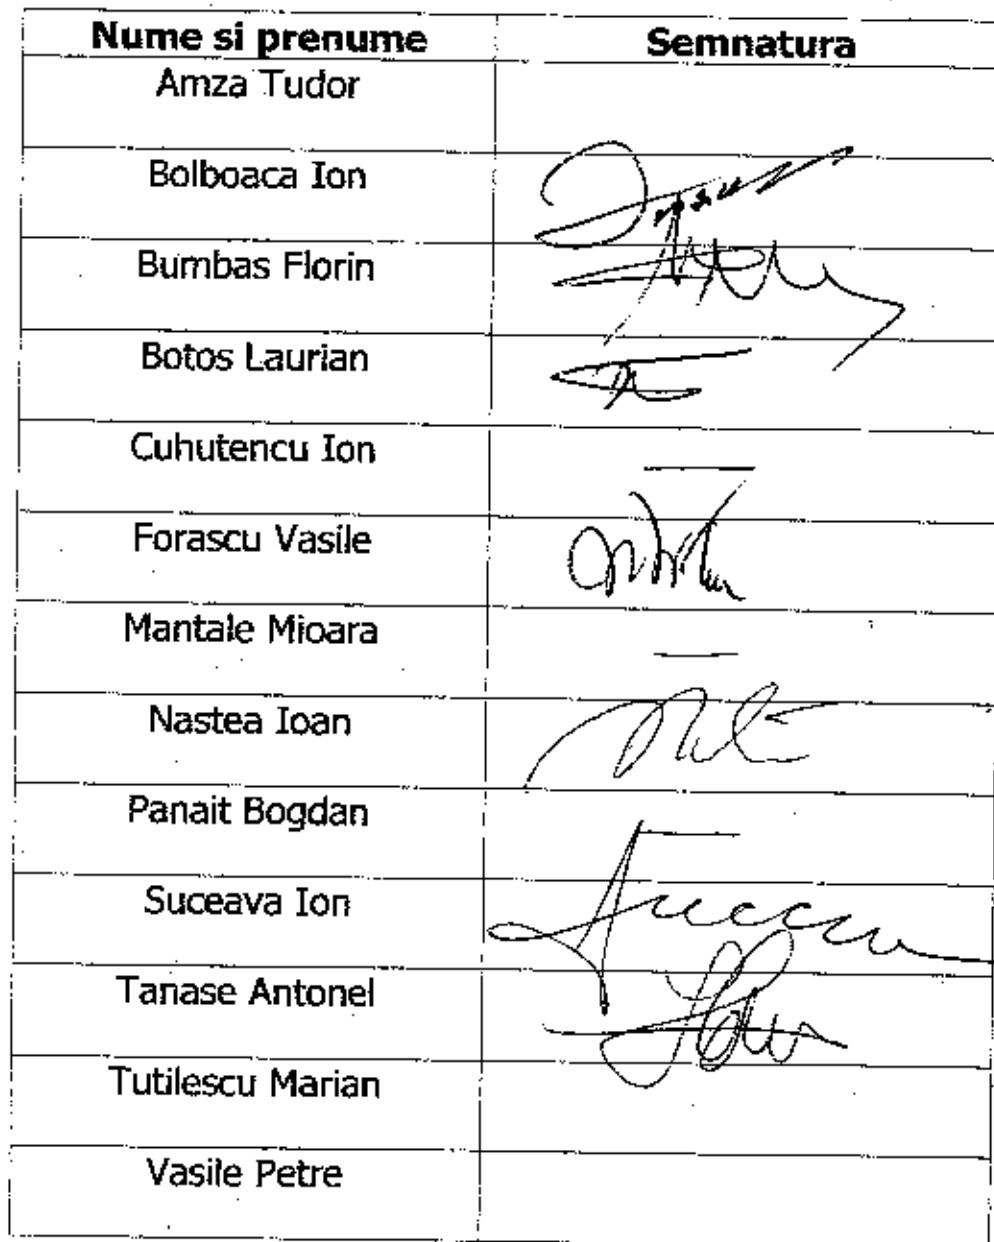 Nume si prenume Semnatura
Amza Tudor
Bolboaca Ion
Bumbas Florin
Botos Laurian
Cuhutencu Ion
Forascu Vasile
Mantale Mioara
Nastea Ioan
Panait Bogdan
Suceava Ion
Tanase Antonel
Tutilescu Marian
Vasile Petre